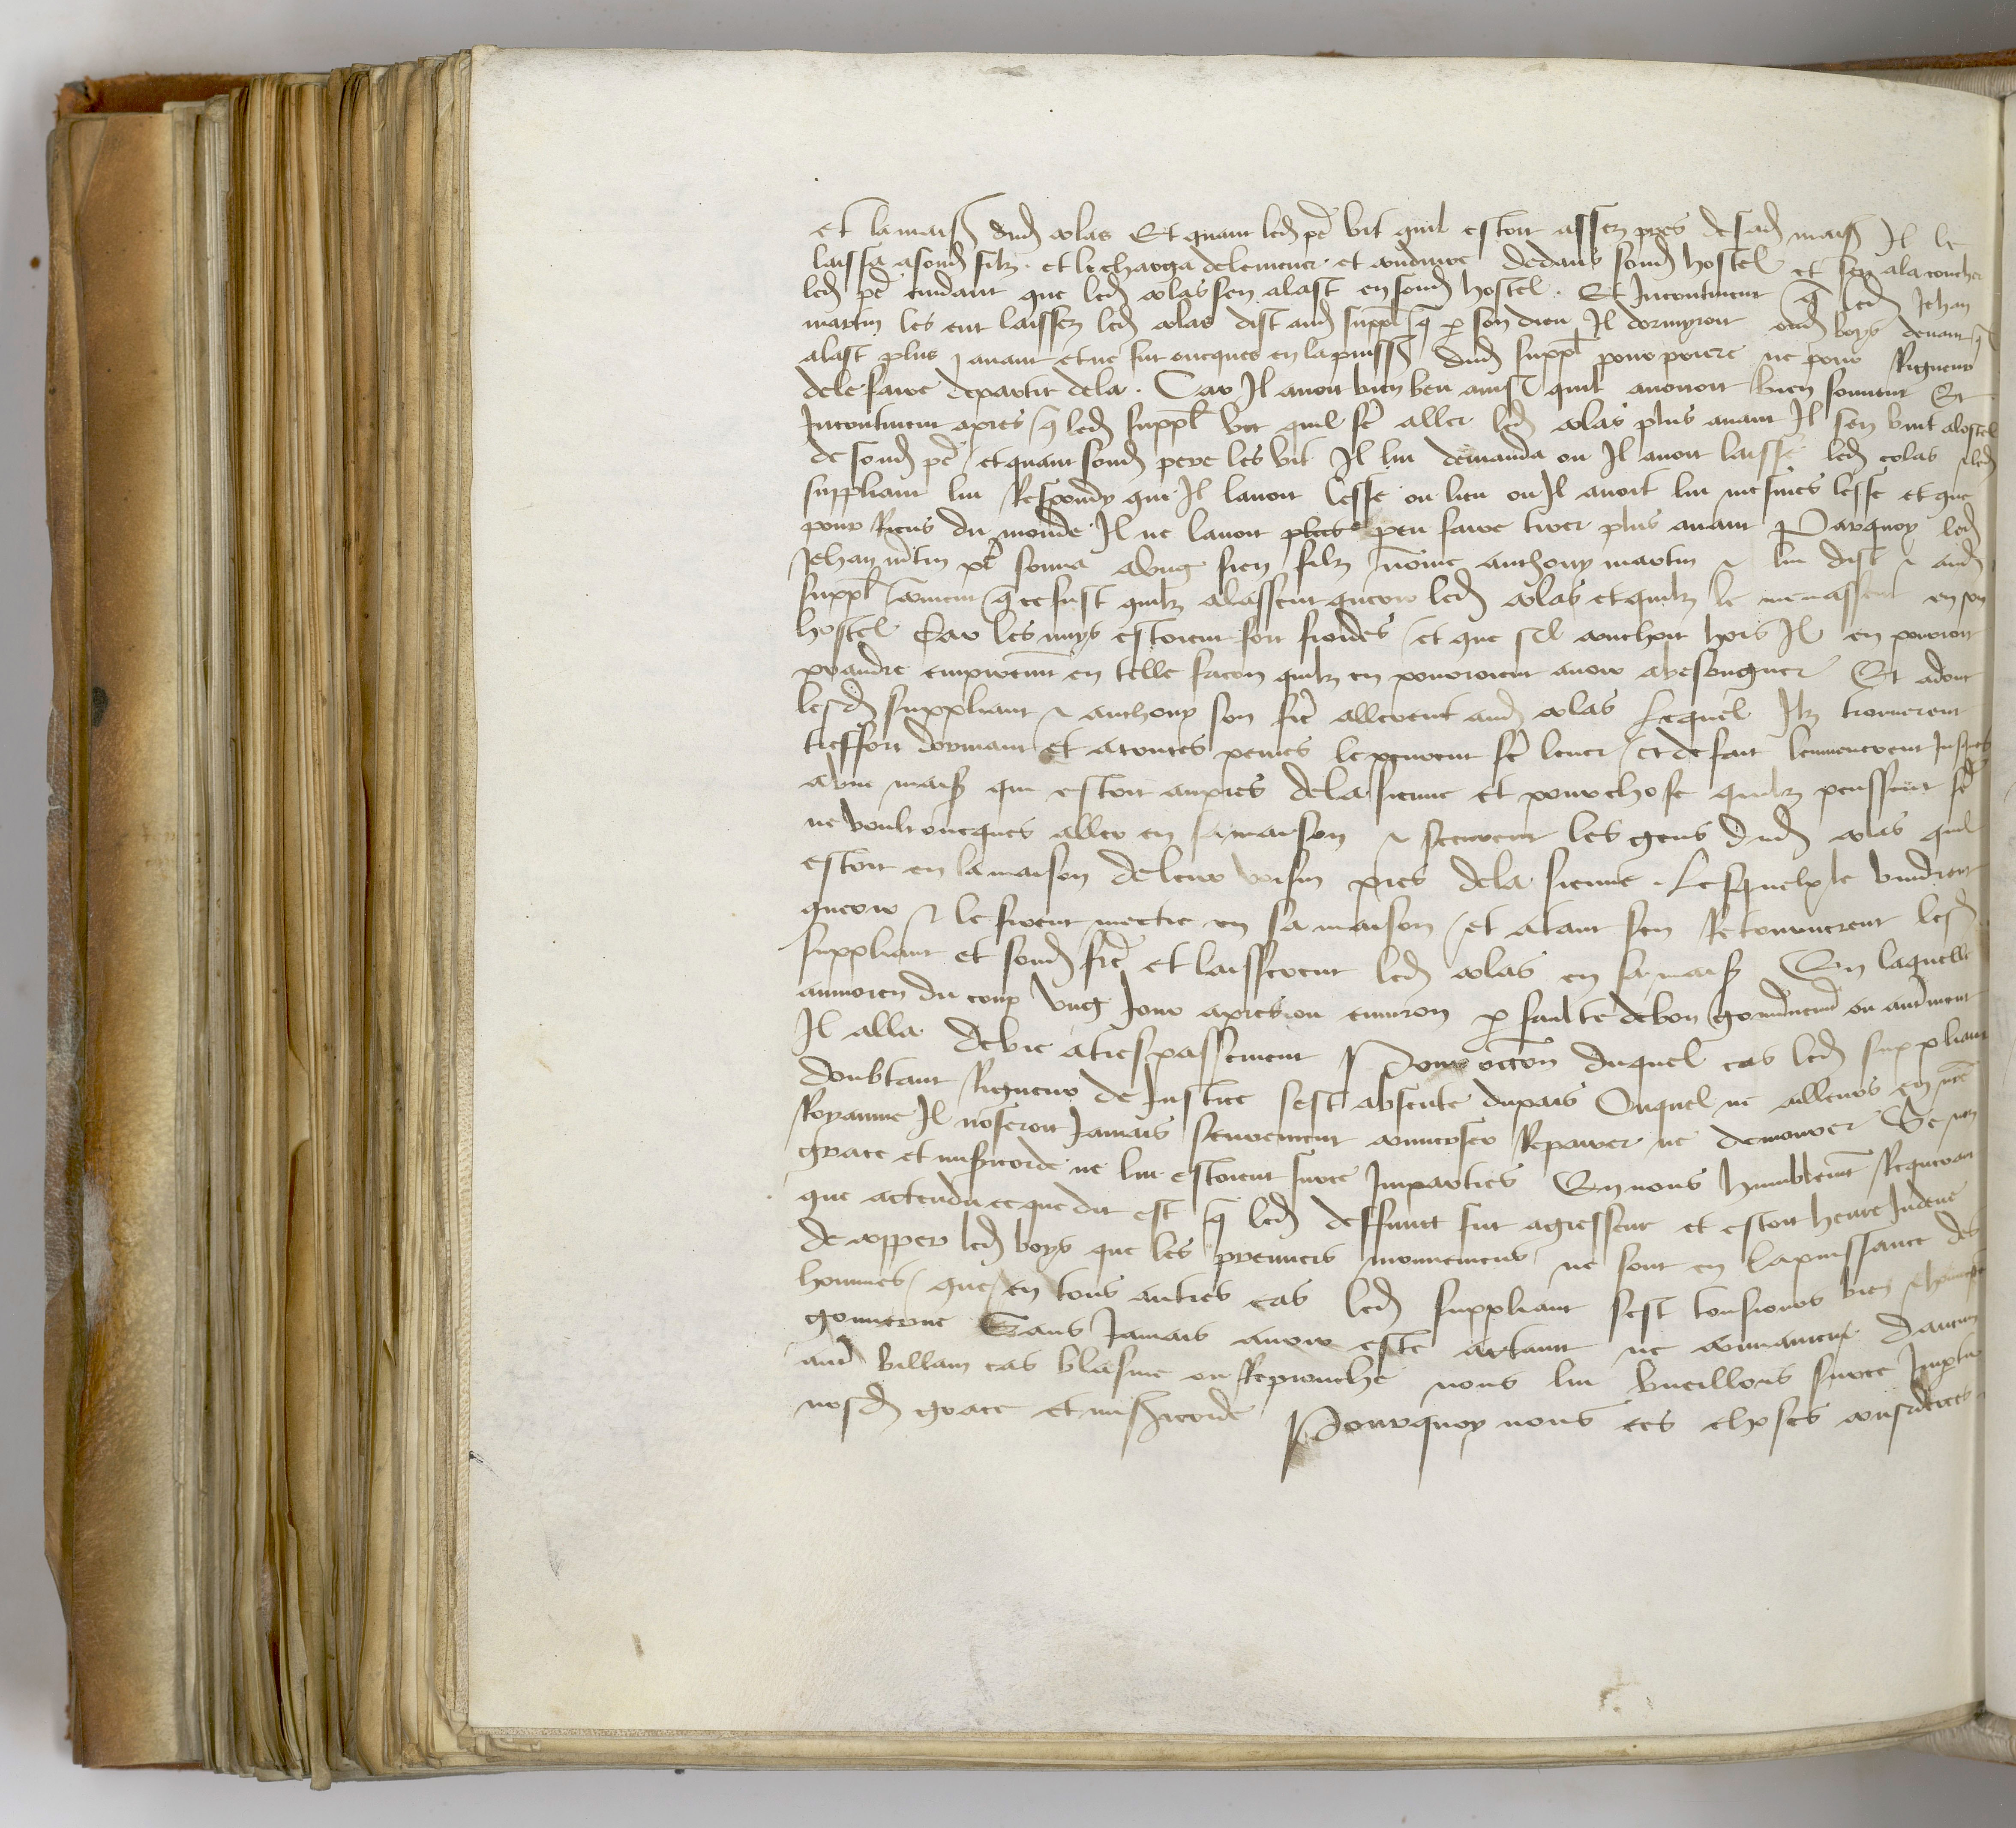 et la mais dud colas Et quant led pe vit quil estoit assez pres de sad mais Il le
laissa a sond filz . et le charga de le mener . et conduire dedans sond hostel et sen ala coucher
led pe cuidant que led colas sen alast en sond hostel . Et Incontinent q led Jehan
martin les eut laissez led colas dist aud suppl q p son dieu Il dormyroit oud boys devant q
alast plus avant et ne fut oncques en la puiss dud suppl pour priere ne pour Rigueur
de le faire departir de la . Car Il avoit bien beu ainsi quil avenoit bien souvent Et
Incontinent apres q led suppl vit quil fe aller led colas plus avant Il sen vint a lostel
de sond pe et quant sond pere les vit Il lui demanda ou Il avoit laisse led colas led
suppliant lui Respondy que Il lavoit lesse ou lieu ou Il avoit lui mesmes lesse et que
pour Riens du monde Il ne lavoit peu faire tirer plus avant Parquoy led
Jehan mtin pe sonna a ung sien filz nome anthony martin lui dist aud
suppl coment q ce fust quilz alassent querir led colas et quilz le menassent en son
hostel Car les nuys estoient fort froides et que sil couchoit hors Il en pouroit
prandre empirement en telle facon quilz en pouroient avoir a besongner Et adont
lesd suppliant anthony son fre allerent aud colas Lequel Ilz trouverent
tresfort dormant et a toutes peines le peurent fe lever et de fait lemmenerent Jusques
a une mais qui estoit aupres de la sienne et pour chose quilz peussent fe
ne voult oncques aller en sa maison sceurent les gens dud colas quil
estoit en la maison de leur voisin pres de la sienne . Lesquelx le vindrent
querir le firent mectre en sa maison et a tant sen Retournerent lesd
suppliant et sond fre et laisserent led colas en sa mais En laquelle
au moien du coup ung Jour apres ou environ p faulte de bon gouvnemt ou autrement
Il alla de vie a trespassement Pour occon duquel cas led suppliant
doubtant Rigueur de Justice sest absente du pais Ouquel ne ailleurs en nre
Royaume Il noseroit Jamais seurement converser Repairer ne demourer Se noz
grace et misicorde ne lui estoient sur ce Imparties En nous humblemt Requerant
que actendu ce que dit est q led deffunct fut agresseur et estoit heure Indeue
de copper led boys que les premiers mouvemens ne sont en la puissance des
hommes que en tous autres cas led suppliant sest tousiours bien honneste
gouverne Sans Jamais avoir este actaint ne convaincu daucun
aut villain cas blasme ou Reprouche nous lui vueillons sur ce Imptir
nosd grace et misicorde Pourquoy nous ces choses considerees